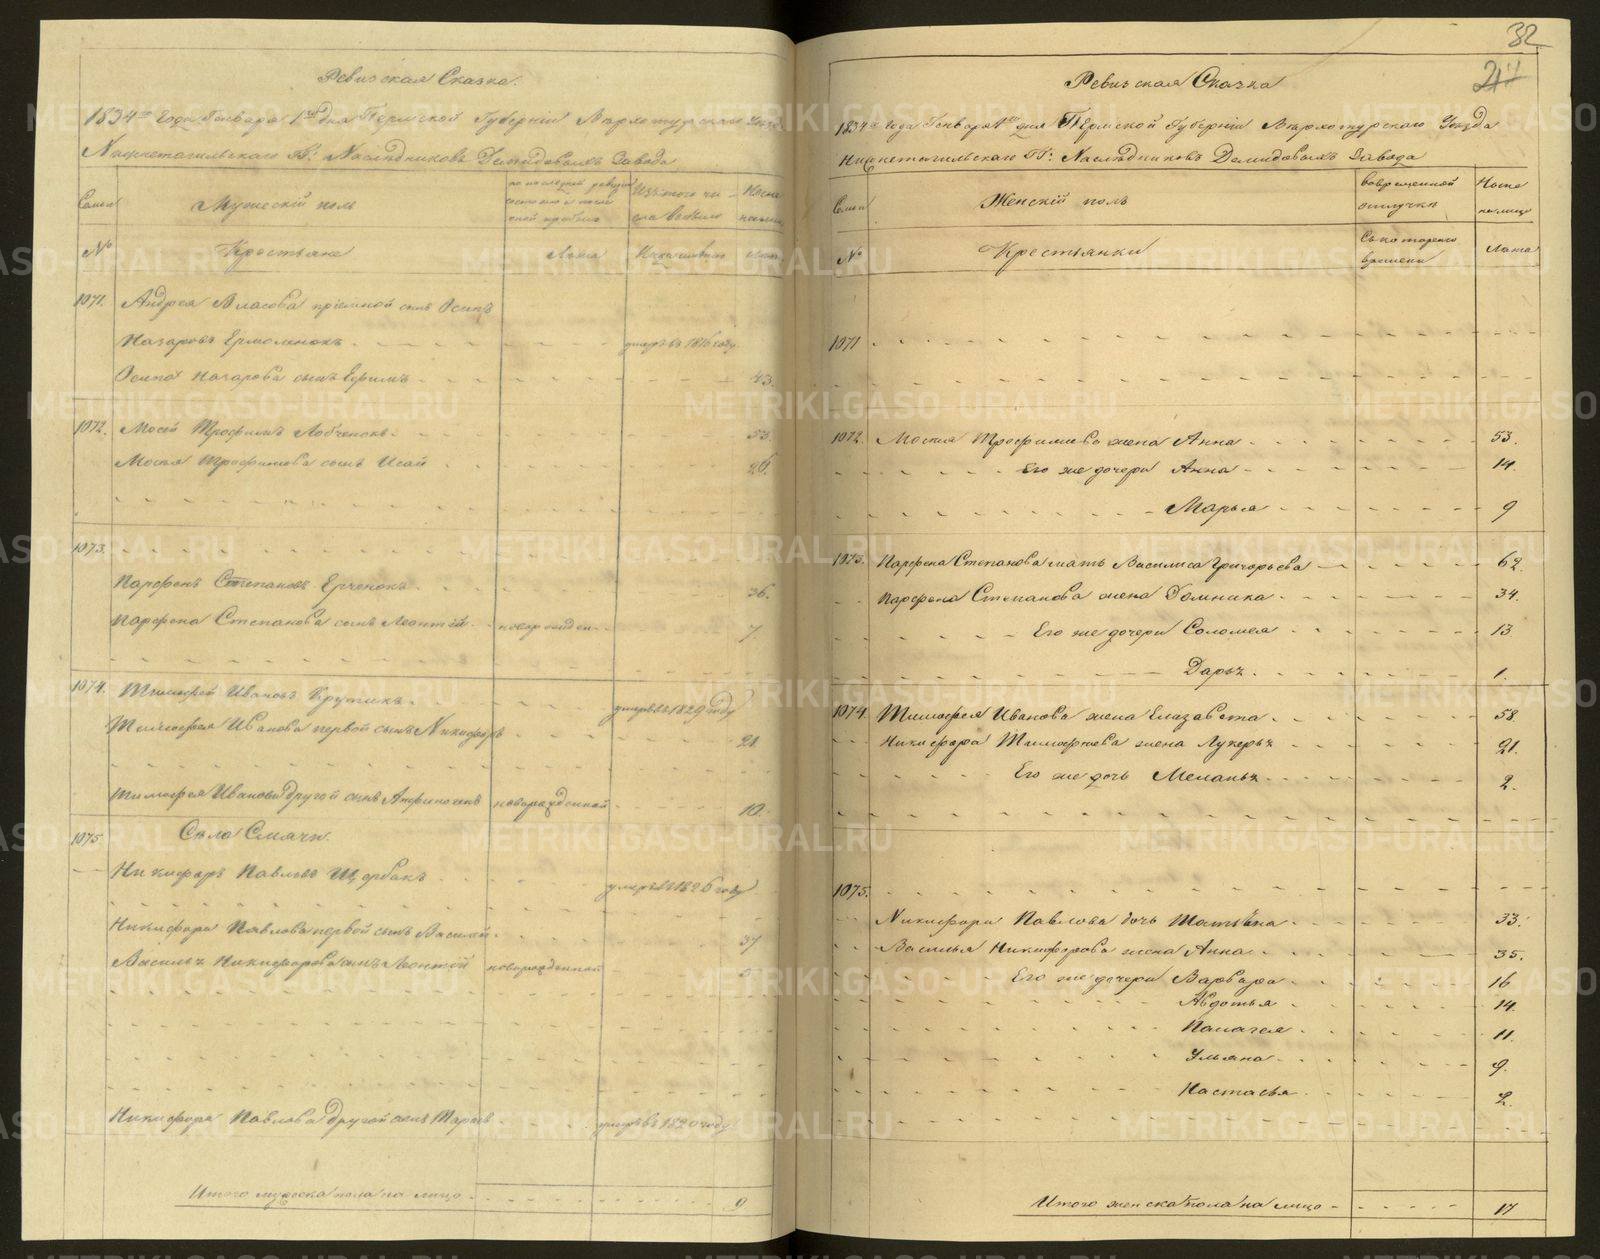 Ревизская Сказка.
1834го Года Генваря 1го дня Пермской Губернии Верхотурскаго Уезда
Нижнетагильскаго Г: Наследниковъ Демидовыхъ завода
Семьи
Мужескiй полъ
по последней ревизiи состояло и после оной прибыло
Изъ того числа выбыло
Ныне налицо
№
Крестьяне
Лета
Лета
1071. Андрея Власова прiемной сынъ Осипъ
Назаровъ Ермоленокъ умеръ въ 1816 году
Осипа Назарова сынъ Ефимъ 43.
1072. Мосей Трофимъ Лобченокъ 53.
Мосея Трофимова сынъ Исай 26.
1073.
Парфенъ Степановъ Ерченокъ 36.
Парфена Степанова сынъ Леонтей новорожден. 7
1074. Тимофей Ивановъ Крутикъ умеръ въ 1829 году
Тимофея Иванова первой сынъ Никифоръ 21
Тимофея Иванова другой сынъ Афиногенъ новорожденной 10.
1075 Село Смячи.
Никифоръ Павловъ Щербакъ умеръ въ 1826 году
Никифора Павлова первой сынъ Василей 37
Василья Никифорова сынъ Леонтей новорожденной
Никифора Павлова другой сынъ Тарасъ умеръ въ 1820 году
Итого мужеска пола на лицо 9
32
Ревизская Сказка
1834го Года Генваря 1го дня Пермской Губернiи Верхотурскаго Уезда
Нижнетагильскаго Г: Наследниковъ Демидовыхъ Завода
Семьи
Женскiй полъ
во временной отлучке
Ныне налицо
№
Крестьянки
Съ котораго времени
Лета
1071
1072. Мосея Трофимова жена Анна 53.
Его же дочери Анна 14.
Марья 9
1073. Парфена Степанова мать Василиса Григорьева 62
Парфена Степанова жена Домника 34.
Его же дочери Соломея 13
Дарья. 1.
1074. Тимофея Иванова жена Елизавета 58
Никифора Тимофеева жена Лукерья 21.
Его же дочь Меланья 2.
1075.
Никифора Павлова дочь Татьяна 33.
Василья Никифорова жена Анна 35.
Его же дочери Варвара 16
Авдотья 14.
Палагея 11.
Ульяна 9.
Настасья 2.
Итого женска пола на лицо 17
METRIKI.GASO-URAL.RU